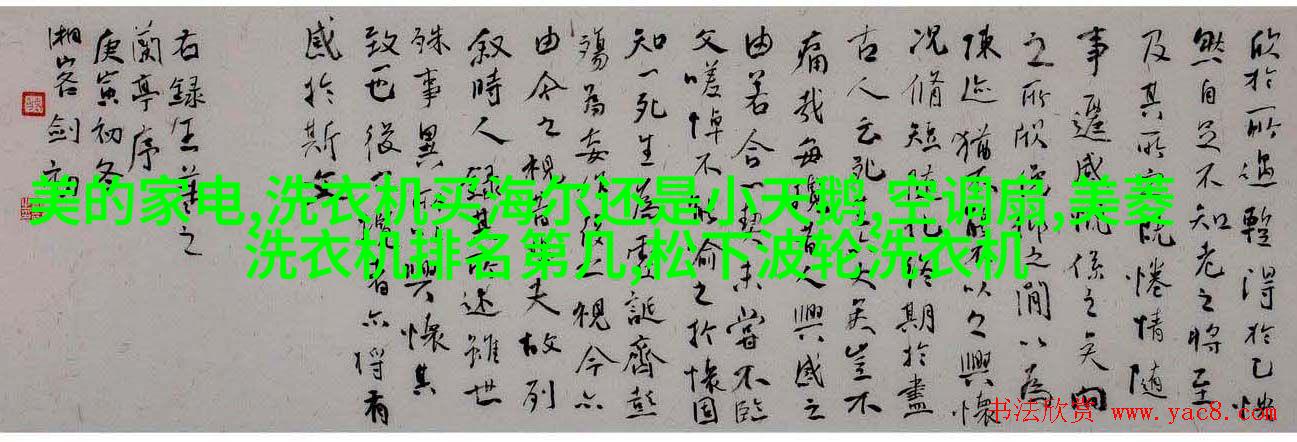 欣於所遇蹔得於己快
然自足不知老之將至
及其所之既惓情隨
事遷感慨係之矣向
之所欣俛仰之閒以為
陳迹猶不能不以之興懷
況脩短隨化終期於盡
古人云死生亦大矣豈不
痛哉每攬昔人興感之
由若合一契未嘗不臨
文嗟悼不能喻之於懷固
知一死生為虛誕齊彭
殤為妄作後之視今亦
由今之視昔悲夫故列
敘時人錄其所述雖世
殊事異所以興懷其
致一也後之攬者亦將有
感於斯文
右録王羲之
蘭亭序
庚寅初冬
湘客劍
美的家电,洗衣机买海尔还是小天鹅,空调扇,美菱
洗衣机排名第几,松下波轮洗衣机
书法欣赏 www.yac8.com